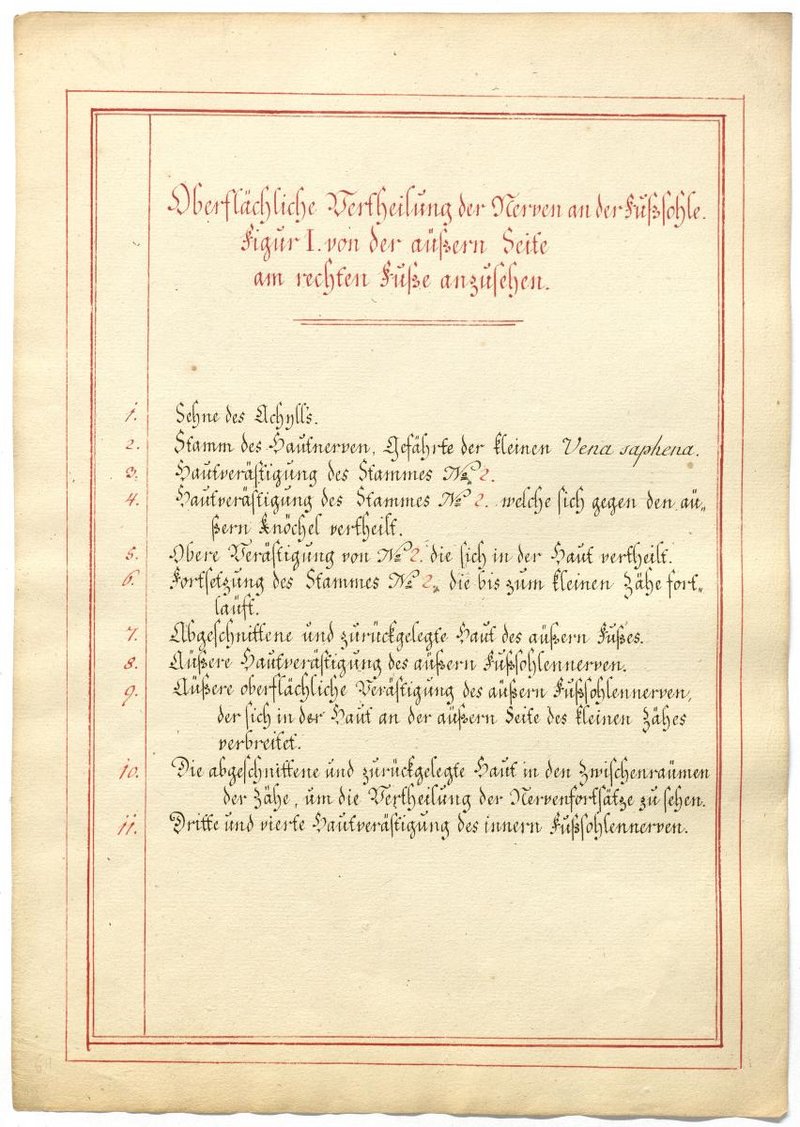 Oberflächliche Vertheilung der Nerven an der Fußsohle.
Figur I. von der äußern Seite
am rechten Fuße anzusehen.
1. Sehne des Achylls.
2. Stamm des Hautnerven, Gefährte der kleinen Vena saphena.
3. Hautverästigung des Stammes No 2.
4. Hautverästigung des Stammes No 2. welche sich gegen den äu„
ßern Knöchel vertheilt.
5. Obere Verästigung von No 2. die sich in der Haut vertheilt.
6. Fortsetzung des Stammes No 2„ die bis zum kleinen Zähe fort„
läuft.
7. Abgeschnittene und zurückgelegte Haut des äußern Fußes.
8. Äußere Hautverästigung des äußern Fußsohlennerven.
9. Äußere oberflächliche Verästigung des äußern Fußsohlennerven,
der sich in der Haut an der äußern Seite des kleinen Zähes
verbreitet.
10. Die abgeschnittene und zurückgelegte Haut in den Zwischenräumen
der Zähe, um die Vertheilung der Nervenfortsätze zu sehen.
11. Dritte und vierte Hautverästigung des innern Fußsohlennerven.